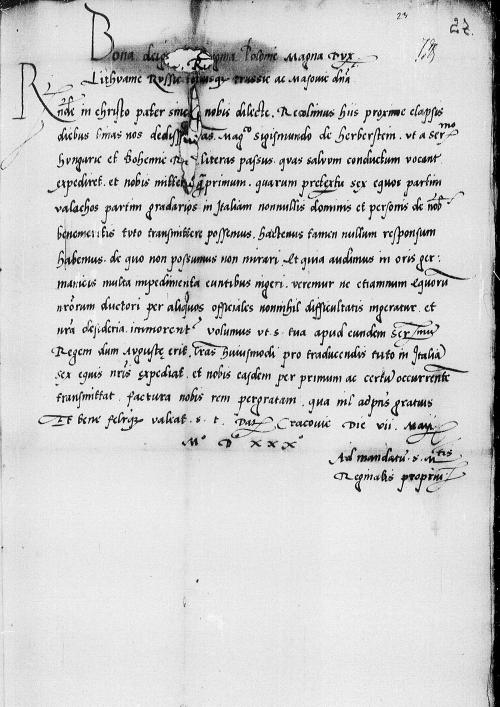 23 27
Bona dei g Regina Polonie Magna Dux
Lithuanie Russie totiusqz Prussie ac Masouie dña
Rnde in christo pater sinc nobis dilecte. Recolimus hiis proxime elapsis
diebus binas nos dedisse ras. Mag.co Sigismundo de Herberstein. vt a ser.mo
Hungarie et Bohemie Re literas passus. quas saluum conductum vocant
expediret. et nobis mittet qprimum. quarum pretextu sex equos partim
valachos partim gradarios in Italiam nonnullis dominis et personis de nob
benemeritis tuto transmittere possemus. hactenus tamen nullum responsum
habemus. de quo non possumus non mirari. Et quia audimus in oris ger:
manicis multa impedimenta euntibus ingeri. veremur ne etiamnum equorum
nrorum ductori per aliquos officiales nonnihil difficultatis ingeratur. et
nra desideria immorent. volumus vt. s. tua apud eundem ser.mu
Regem dum Auguste erit. lras huiusmodi pro traducendis tuto in Italia
sex equis nris expediat. et nobis easdem per primum ac certu occurrente
transmittat. factura nobis rem pergratam. qua nil adptis gratius
Et bene feliqz valeat. s. t. Dat Cracouie Die vii. Maij
M.o D.o xxx.o
Ad mandatu. s. M.tis
Reginalis propriu